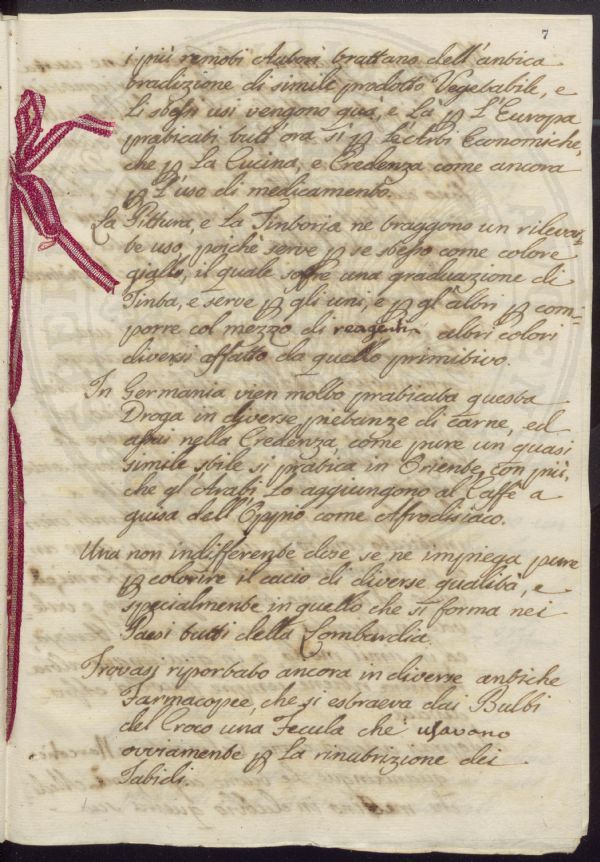 7
i più remoti Autori trattano dell'antica
tradizione di simile prodotto Vegetabile, e
li stessi usi vengono quà, e là ꝑ l'Europa
praticati tutt'ora sì ꝑ le Arti Economiche,
che ꝑ la Cucina, e Credenza come ancora
ꝑ l'uso di medicamento.
La Pittura, e la Tintoria ne traggono un rilevan-
te uso, poichè serve ꝑ se stesso come colore
giallo, il quale soffre una graduazione di
Tinta, e serve ꝑ gli uni, e ꝑ gl'altri ꝑ com-
porre col mezzo di reagenti altri colori
diversi affatto da quello primitivo.
In Germania vien molto praticata questa
Droga in diverse pietanze di carne, ed
assai nella Credenza, come pure un quasi
simile stile si pratica in Oriente, con più,
che gl'Arabi lo aggiungono al Caffè a
guisa dell'Oppio come Afrodisiaco.
Una non indifferente dose se ne impiega pure
ꝑ colorire il cacio di diverse qualità, e
specialmente in quello che si forma nei
Paesi tutti della Lombardia.
Trovasi riportato ancora in diverse antiche
Farmacopee, che si estraeva dai Bulbi
del Croco una Fecula che usavano
ovviamente ꝑ la rinutrizione dei
Tabidi.